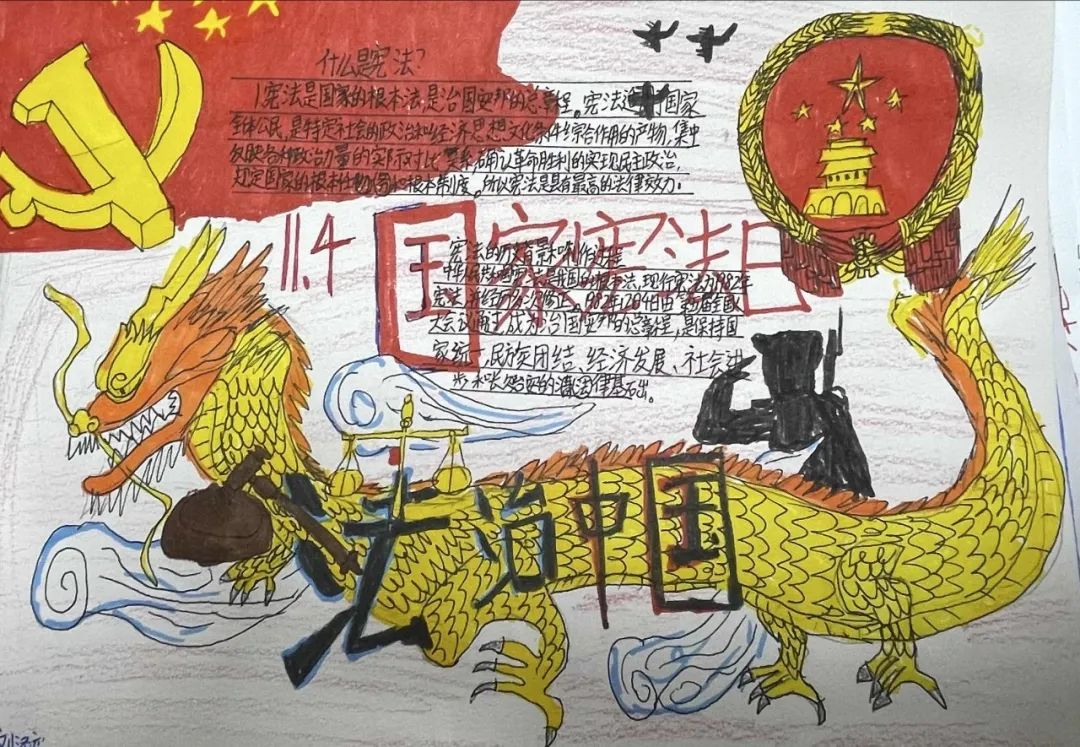 什么是宪法？
1宪法是国家的根本法，是治国安邦的总章程。宪法适 国家
全体公民，是特定社会的政治和经济思想文化条件综合作用的产物，集中
反映各种政治力量的实际对比关系，确认革命胜利的实现民主政治，
规定国家的根本任务和根本制度。所以宪法是具有最高的法律效力。
11.4 国家宪法日
宪法的历史背景和制作过程
法是我国的根本法，现行宪法为1982年
宪法，并经历 次修正。1982年12月4日由
大会议通过成为治国安邦的总章程，是保持国
家统一、民族团结、经济发展、社会进
步和长治久安的 法律基础。
法治中国